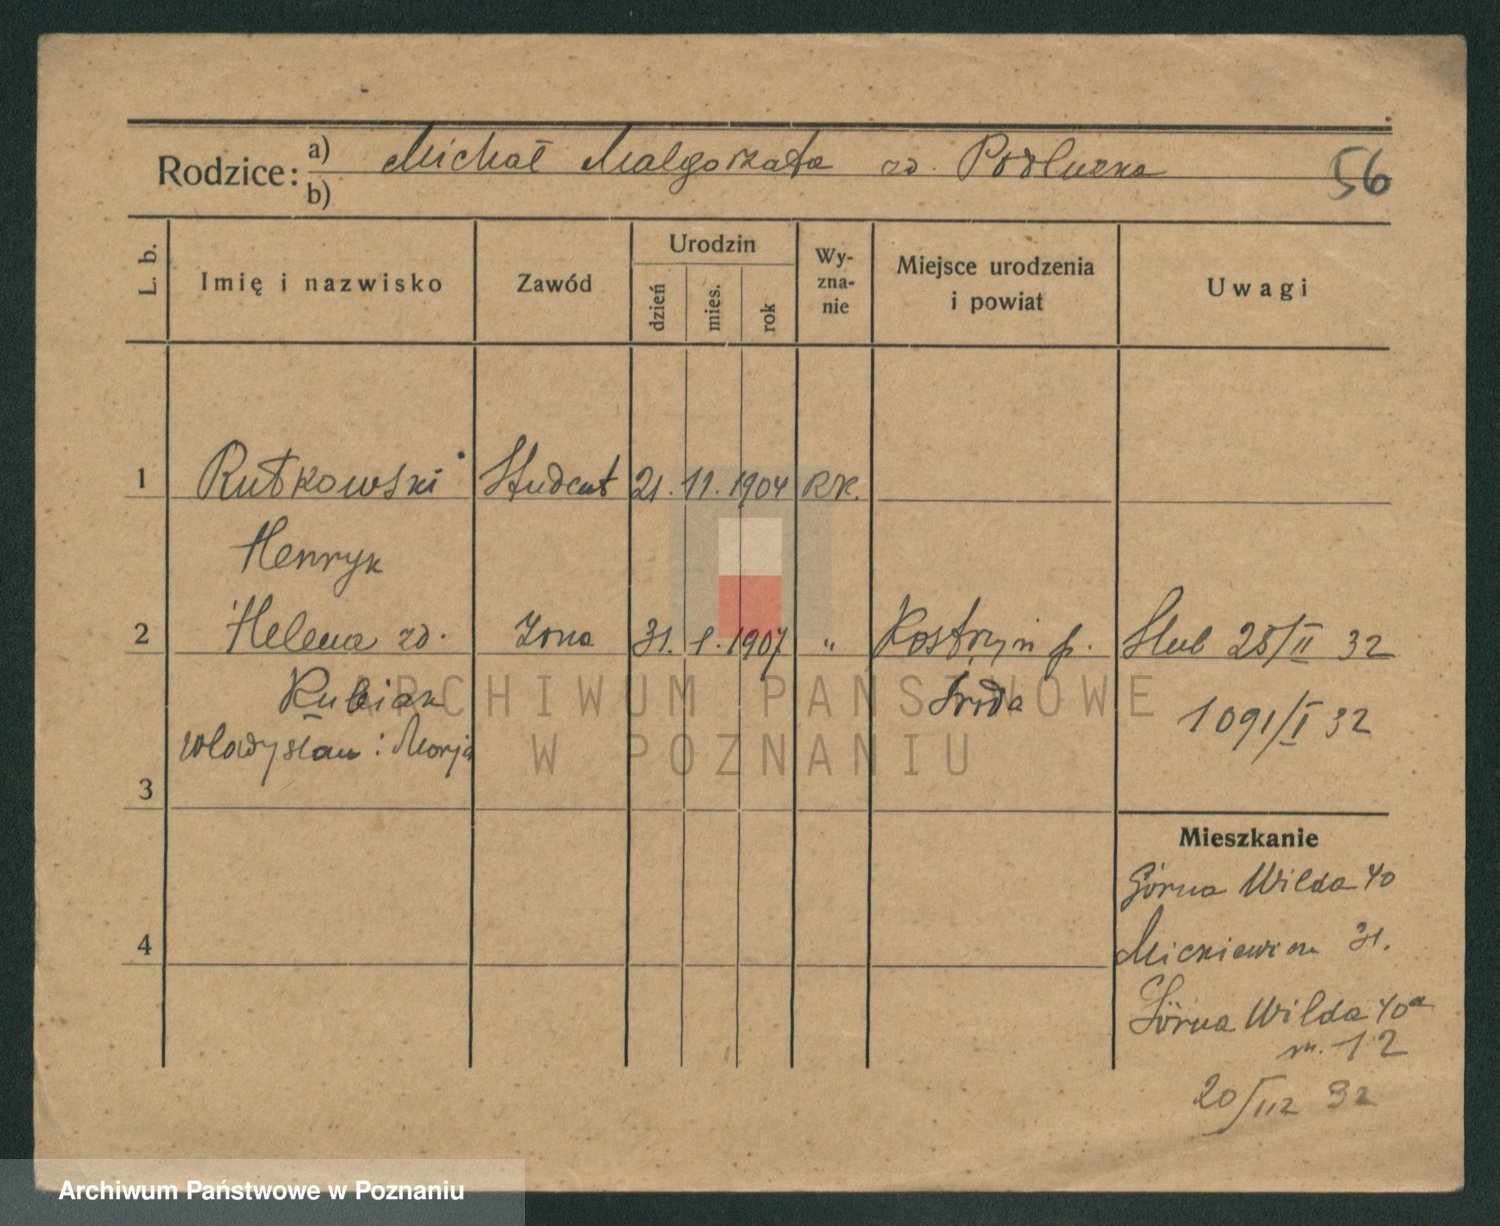 Rodzice: a) Michał Małgorzata zd. Podluzna 56
b)
L. b. Imię i nazwisko Zawód Urodzin dzień mies. rok Wyzna-nie Miejsce urodzenia i powiat Uwagi
1 Rutkowski Student 21. 11. 1904 RK.
Henryk
2 Helena zd. Żona 31. 1. 1907 „ Kostrzyn p. Ślub 25/II 32
Kubiak Środa 1091/I 32
Władysław i Marja
3
Mieszkanie
Górna Wilda 40
4 Mickiewicza 31.
Górna Wilda 40a
m. 12
20/112 32
ARCHIWUM PAŃSTWOWE
W POZNANIU
Archiwum Państwowe w Poznaniu